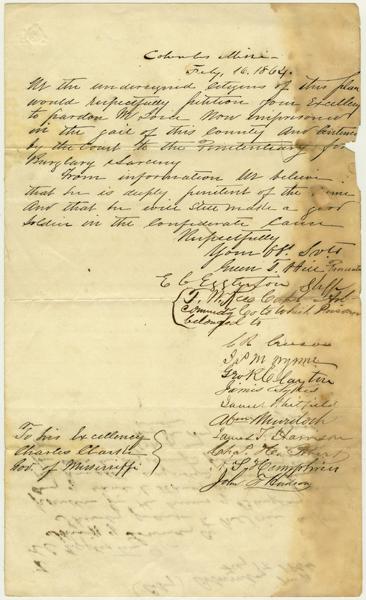 Columbus Miss.
Feby. 16. 1864.
We the undersigned Citizens of this place
would respectfully petition your Excellency
to pardon M. Now imprisoned
in the jail of this County And Sentenced
by the Court to the Penitentiary for
Burglary & Larceny
From information We believe
that he is deeply penitent of the crime
And that he will still make a good
Soldier in the Confederate Cause
Respectfully
Your Ob. Svts
Green T. Hill
E C Eggleston Shff
T. W. Capt
Comndg Co to which Prisoner
belonged to
C R Crusoe
Jas M Wynne
Geo R C Clayton
James Sykes
Whitfield
Abm Murdock
James T. Harrison
Chas.
Hamphries
John T
To his Excellency
Charles Clark
Gov. of Mississippi